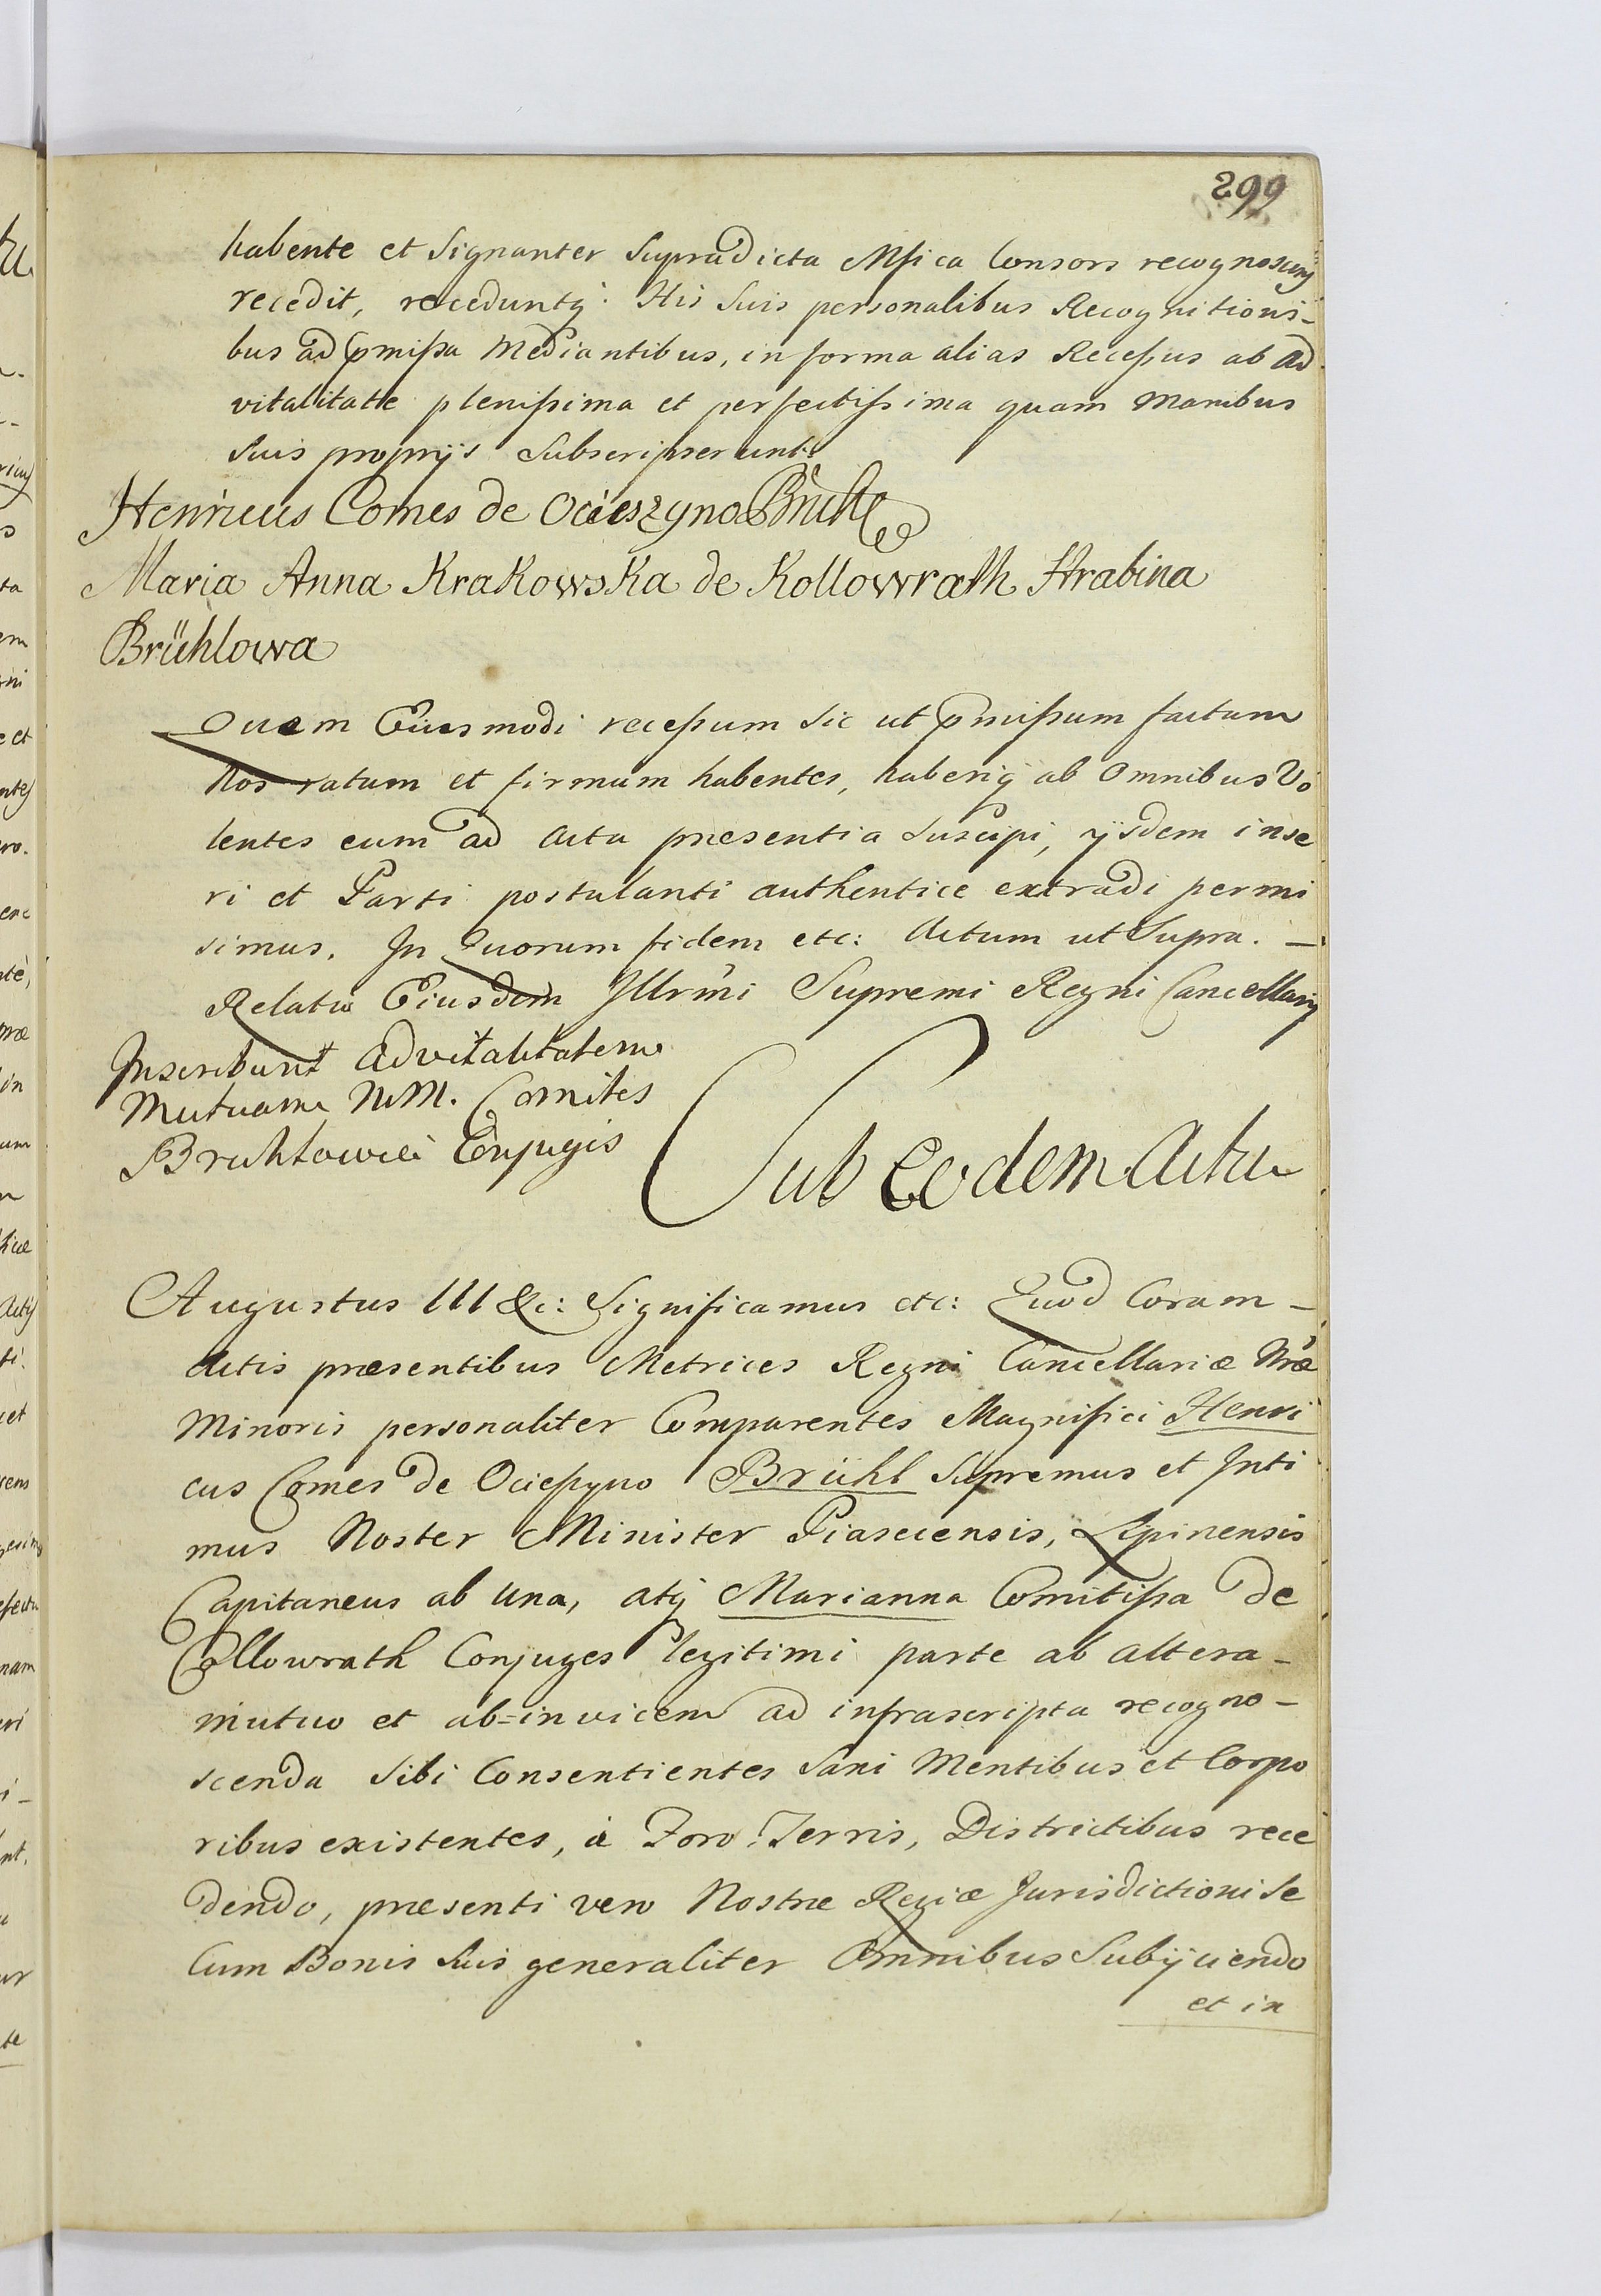 299
habente et Signanter Supradicta Mfica Consors recognoscunt
recedit, receduntq. His Suis personalibus Recognitioni-
bus ad pmissa Mediantibus, in forma alias Recessus ab ad
vitalitate plenissima et perfectissima quam Manibus
Suis proprijs Subscripserunt.
Henricus Comes de Ocieszyno Brühl
Maria Anna Krakowska de Kollowrath Hrabina
Brühlowa
Quem Eiusmodi recessum sic ut pmissum factum
Nos ratum et firmum habentes, haberiq ab Omnibus Vo
lentes eum ad Acta præsentia Suscipi, ijsdem inse
ri et Parti postulanti authentice extradi permi
simus. In Quorum fidem etc: Actum ut Supra. —
Relatio Eiusdem Illrmi Supremi Regni Cancellarij
Inscribunt Advitalitatem
Mutuam MM. Comites
Bruhlowie Conjuges
Sub Eodem Actu
Augustus III &c: Significamus etc: Quod Coram —
Actis præsentibus Metrices Regni Cancellariæ Nræ
Minoris personaliter Comparentes Magnifici Henri
cus Comes de Ociessyno Brühl Supremus et Inti
mus Noster Minister Piasecensis, Lipinensis
Capitaneus ab Una, atq Marianna Comitissa de
Collowrath Conjuges legitimi parte ab altera —
mutuo et ab=invicem ad infrascripta recogno —
scenda sibi Consentientes Sani Mentibus et Corpo
ribus existentes, à Foro, Terris, Districtibus rece
dendo, præsenti vero Nostræ Regiæ Jurisdictioni se
Cum Bonis Suis generaliter Omnibus Subijciendo
et in